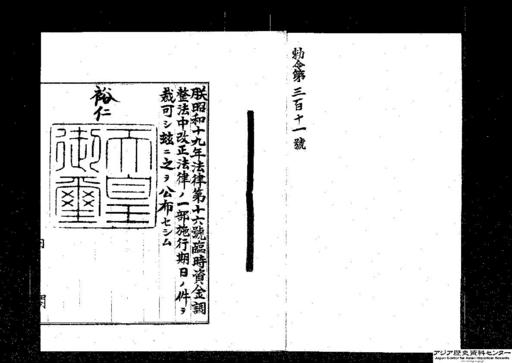 勅令第三百十一號
朕昭和十九年法律第十六號臨時資金調
整法中改正法律ノ一部施行期日ノ件ヲ
裁可シ玆ニ之ヲ公布セシム
裕仁
天皇
御璽
アジア歴史資料センター
Japan Center for Asian Historical Records